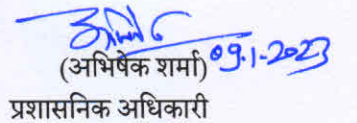 (अभिषेक शर्मा) 09-1-2023
प्रशासनिक अधिकारी